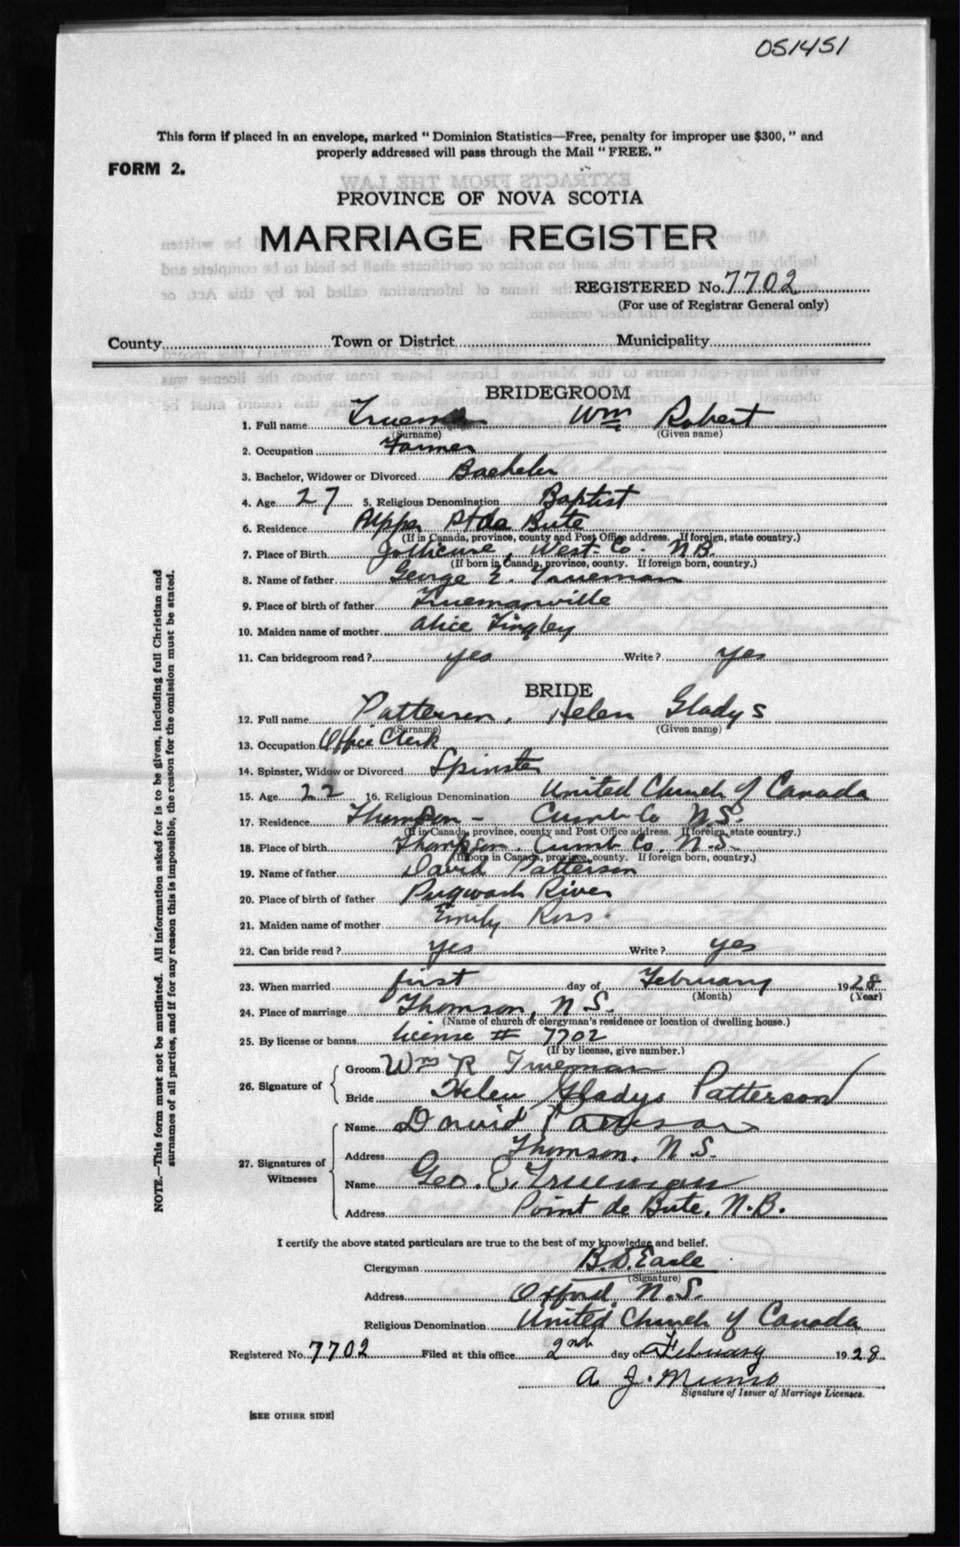 051451
This form if placed in an envelope, marked " Dominion Statistics—Free, penalty for improper use $300, " and
properly addressed will pass through the Mail " FREE. "
FORM 2.
PROVINCE OF NOVA SCOTIA
MARRIAGE REGISTER
REGISTERED No. 7702
(For use of Registrar General only)
County Town or District Municipality
BRIDEGROOM
1. Full name Trueman Wm Robert
(Surname) (Given name)
2. Occupation Farmer
3. Bachelor, Widower or Divorced Bachelor
4. Age 27 5. Religious Denomination Baptist
6. Residence Upper Pt de Bute
(If in Canada, province, county and Post Office address. If foreign, state country.)
7. Place of Birth Jollicure, West. Co. N.B.
(If born in Canada, province, county. If foreign born, country.)
8. Name of father George E. Trueman
9. Place of birth of father Truemanville
10. Maiden name of mother Alice Tingley
11. Can bridegroom read ? yes Write ? yes
BRIDE
12. Full name Patterson, Helen Gladys
(Surname) (Given name)
13. Occupation Office Clerk
14. Spinster, Widow or Divorced Spinster
15. Age 22 16. Religious Denomination United Church of Canada
17. Residence Thompson - Cumb Co N.S.
(If in Canada, province, county and Post Office address. If foreign, state country.)
18. Place of birth Thompson, Cumb Co. N.S.
(If born in Canada, province, county. If foreign born, country.)
19. Name of father David Patterson
20. Place of birth of father Pugwash River
21. Maiden name of mother Emily Ross.
22. Can bride read ? yes Write ? yes
23. When married first day of February 1928
(Month) (Year)
24. Place of marriage Thomson, N.S.
(Name of church or clergyman's residence or location of dwelling house.)
25. By license or banns license # 7702
(If by license, give number.)
26. Signature of
Groom Wm R Trueman
Bride Helen Gladys Patterson
27. Signatures of Witnesses
Name David Patterson
Address Thomson, N.S.
Name Geo. E. Trueman
Address Point de Bute, N.B.
I certify the above stated particulars are true to the best of my knowledge and belief.
Clergyman B.D. Earle
(Signature)
Address Oxford, N.S.
Religious Denomination United Church of Canada
Registered No. 7702 Filed at this office 2nd day of February 1928
A. J. Munro
Signature of Issuer of Marriage Licenses.
[SEE OTHER SIDE]
NOTE.—This form must not be mutilated. All information asked for is to be given, including full Christian and
surnames of all parties, and if for any reason this is impossible, the reason for the omission must be stated.